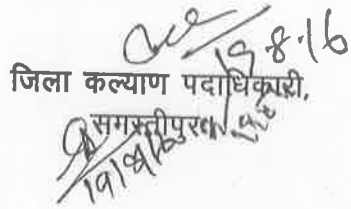 19.8.16
जिला कल्याण पदाधिकारी,
समस्तीपुर।
19/8/16